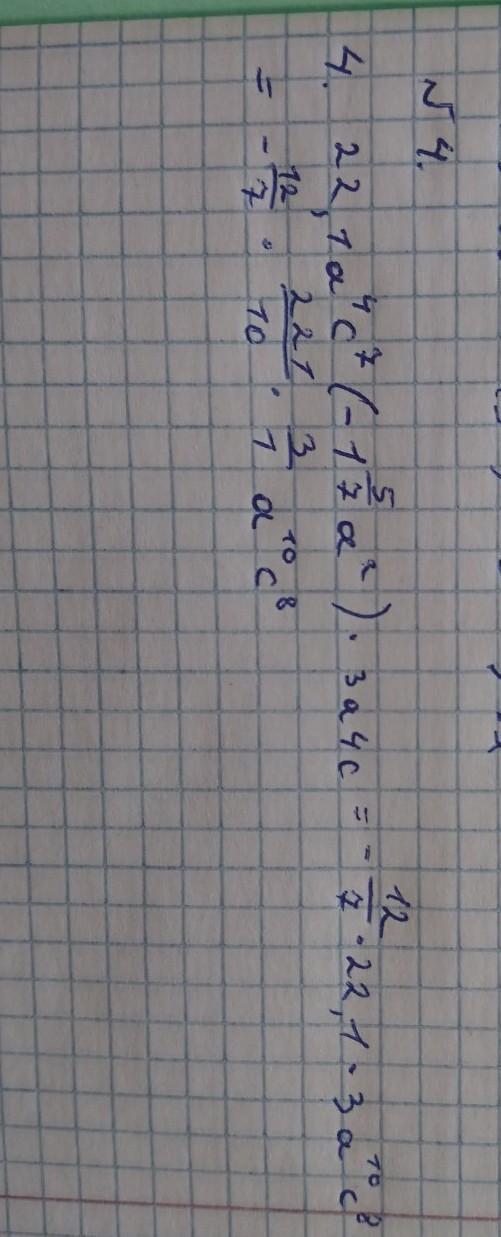 № 4.
4. 22,1a⁴c⁷(-1 5/7 a²) · 3a4c = - 12/7 · 22,1 · 3a¹⁰c⁸
= - 12/7 · 221/10 · 3/1 a¹⁰c⁸